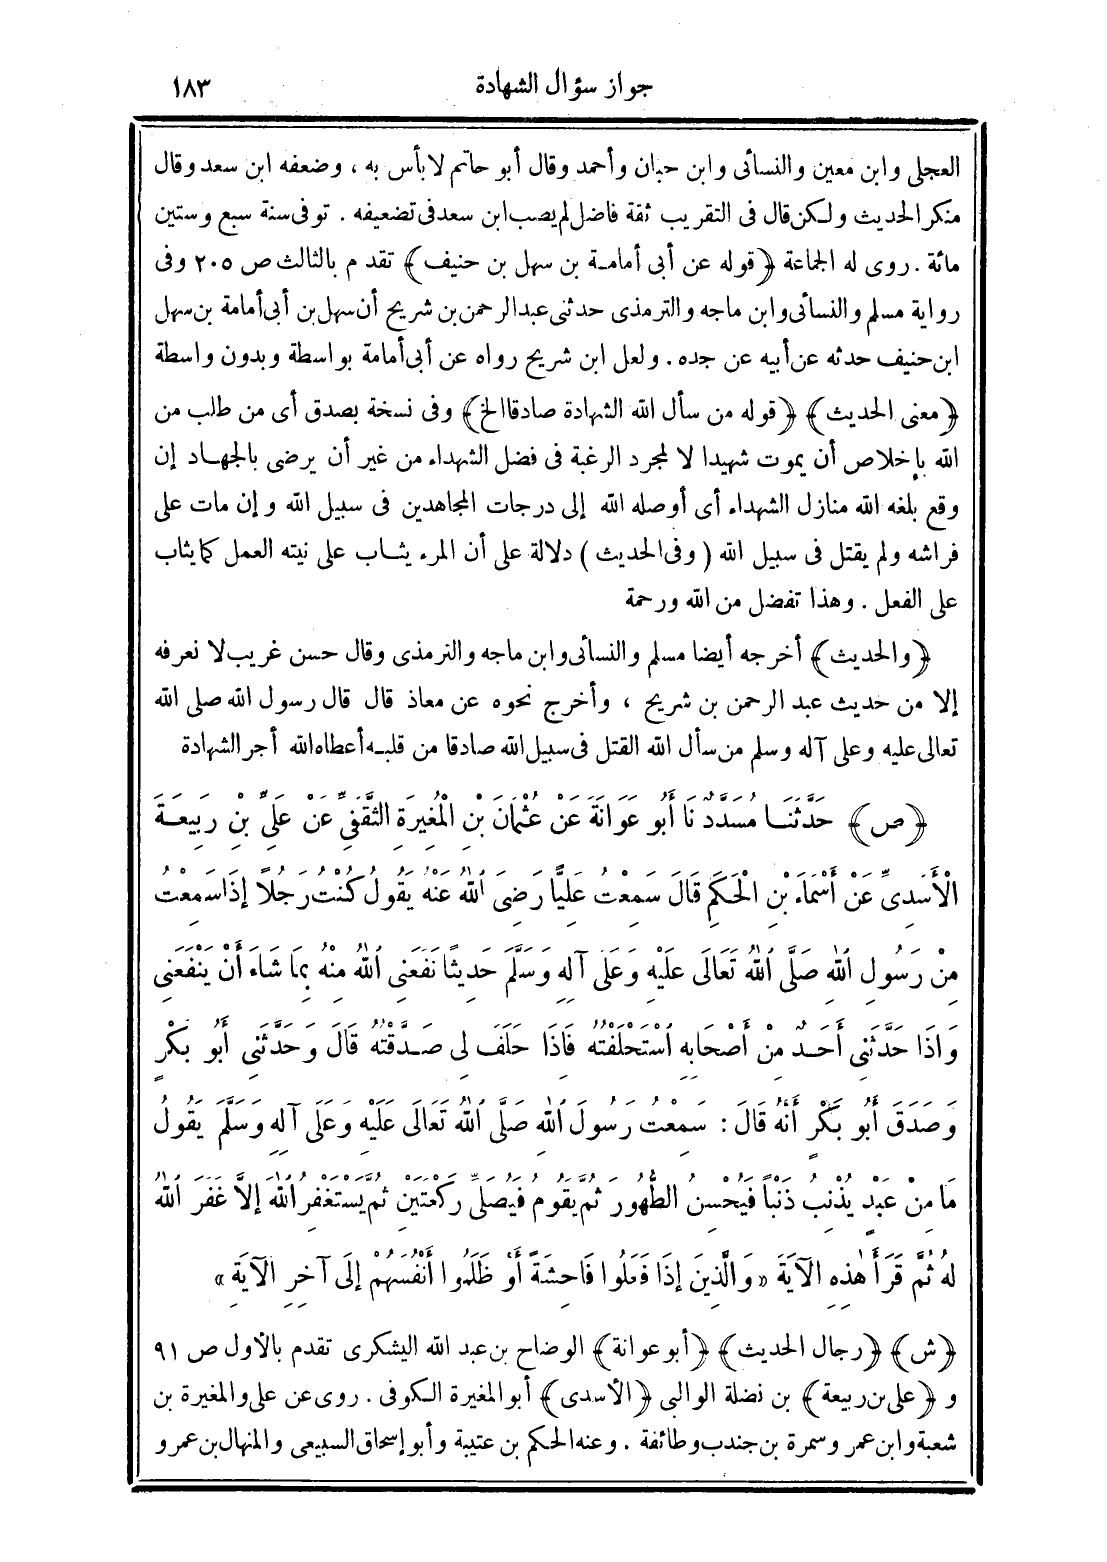 جواز سؤال الشهادة ١٨٣
العجلى وابن معين والنسائى وابن حبان وأحمد وقال أبو حاتم لابأس به ، وضعفه ابن سعد وقال
منكر الحديث ولكن قال فى التقريب ثقة فاضل لم يصب ابن سعد فى تضعيفه . توفى سنة سبع وستين
مائة . روى له الجماعة ﴿قوله عن أبى أمامة بن سهل بن حنيف﴾ تقدم بالثالث ص ٢٠٥ وفى
رواية مسلم والنسائى وابن ماجه والترمذى حدثنى عبد الرحمن بن شريح أن سهل بن أبى أمامة بن سهل
ابن حنيف حدثه عن أبيه عن جده . ولعل ابن شريح رواه عن أبى أمامة بواسطة وبدون واسطة
﴿معنى الحديث﴾ ﴿قوله من سأل الله الشهادة صادقا الخ﴾ وفى نسخة بصدق أى من طلب من
الله بإخلاص أن يموت شهيدا لا لمجرد الرغبة فى فضل الشهداء من غير أن يرضى بالجهاد إن
وقع بلغه الله منازل الشهداء أى أوصله الله إلى درجات المجاهدين فى سبيل الله وإن مات على
فراشه ولم يقتل فى سبيل الله (وفى الحديث) دلالة على أن المرء يثاب على نيته العمل كما يثاب
على الفعل . وهذا تفضل من الله ورحمة
﴿والحديث﴾ أخرجه أيضا مسلم والنسائى وابن ماجه والترمذى وقال حسن غريب لا نعرفه
إلا من حديث عبد الرحمن بن شريح ، وأخرج نحوه عن معاذ قال قال رسول الله صلى الله
تعالى عليه وعلى آله وسلم من سأل الله القتل فى سبيل الله صادقا من قلبه أعطاه الله أجر الشهادة
﴿ص﴾ حَدَّثَنَا مُسَدَّدٌ نَا أَبُو عَوَانَةَ عَنْ عُثْمَانَ بْنِ الْمُغِيرَةِ الثَّقَفِىِّ عَنْ عَلِىِّ بْنِ رَبِيعَةَ
الْأَسَدِىِّ عَنْ أَسْمَاءَ بْنِ الْحَكَمِ قَالَ سَمِعْتُ عَلِيًّا رَضِىَ اللهُ عَنْهُ يَقُولُ كُنْتُ رَجُلًا إِذَا سَمِعْتُ
مِنْ رَسُولِ اللهِ صَلَّى اللهُ تَعَالَى عَلَيْهِ وَعَلَى آلِهِ وَسَلَّمَ حَدِيثًا نَفَعَنِى اللهُ مِنْهُ بِمَا شَاءَ أَنْ يَنْفَعَنِى
وَإِذَا حَدَّثَنِى أَحَدٌ مِنْ أَصْحَابِهِ اسْتَحْلَفْتُهُ فَإِذَا حَلَفَ لِى صَدَّقْتُهُ قَالَ وَحَدَّثَنِى أَبُو بَكْرٍ
وَصَدَقَ أَبُو بَكْرٍ أَنَّهُ قَالَ : سَمِعْتُ رَسُولَ اللهِ صَلَّى اللهُ تَعَالَى عَلَيْهِ وَعَلَى آلِهِ وَسَلَّمَ يَقُولُ
مَا مِنْ عَبْدٍ يُذْنِبُ ذَنْبًا فَيُحْسِنُ الطُّهُورَ ثُمَّ يَقُومُ فَيُصَلِّى رَكْعَتَيْنِ ثُمَّ يَسْتَغْفِرُ اللهَ إِلَّا غَفَرَ اللهُ
لَهُ ثُمَّ قَرَأَ هٰذِهِ الْآيَةَ «وَالَّذِينَ إِذَا فَعَلُوا فَاحِشَةً أَوْ ظَلَمُوا أَنْفُسَهُمْ إِلَى آخِرِ الْآيَةِ»
﴿ش﴾ ﴿رجال الحديث﴾ ﴿أبو عوانة﴾ الوضاح بن عبد الله اليشكرى تقدم بالأول ص ٩١
و ﴿على بن ربيعة﴾ بن نضلة الوالبى ﴿الأسدى﴾ أبو المغيرة الكوفى . روى عن على والمغيرة بن
شعبة وابن عمر وسمرة بن جندب وطائفة . وعنه الحكم بن عتيبة وأبو إسحاق السبيعى والمنهال بن عمرو